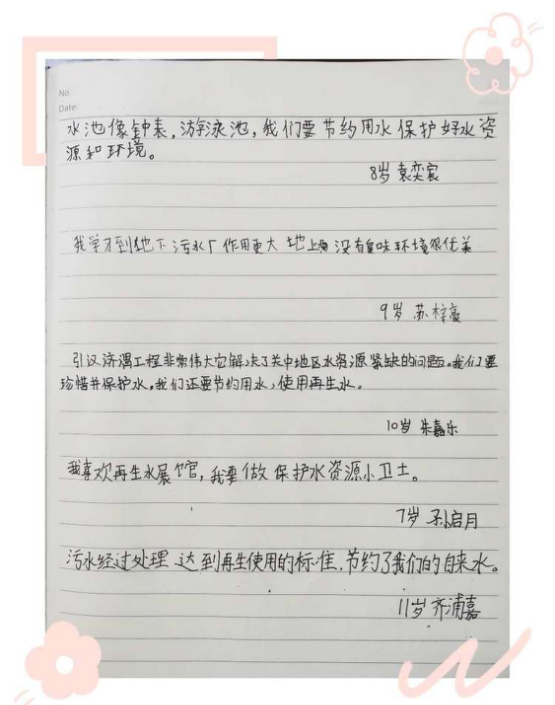 No.
Date:
水池像钟表,游泳池,我们要节约用水保护好水资
源和环境。
8岁 袁奕宸
我学才到地下污水厂作用更大 地上面没有臭味环境很优美
9岁 苏梓豪
引汉济渭工程非常伟大它解决了关中地区水资源紧缺的问题。我们要
珍惜并保护水。我们还要节约用水,使用再生水。
10岁 朱嘉乐
我喜欢再生水展馆,我要做保护水资源小卫士。
7岁 孙启月
污水经过处理 达到再生使用的标准,节约了我们的自来水。
11岁 齐浦嘉